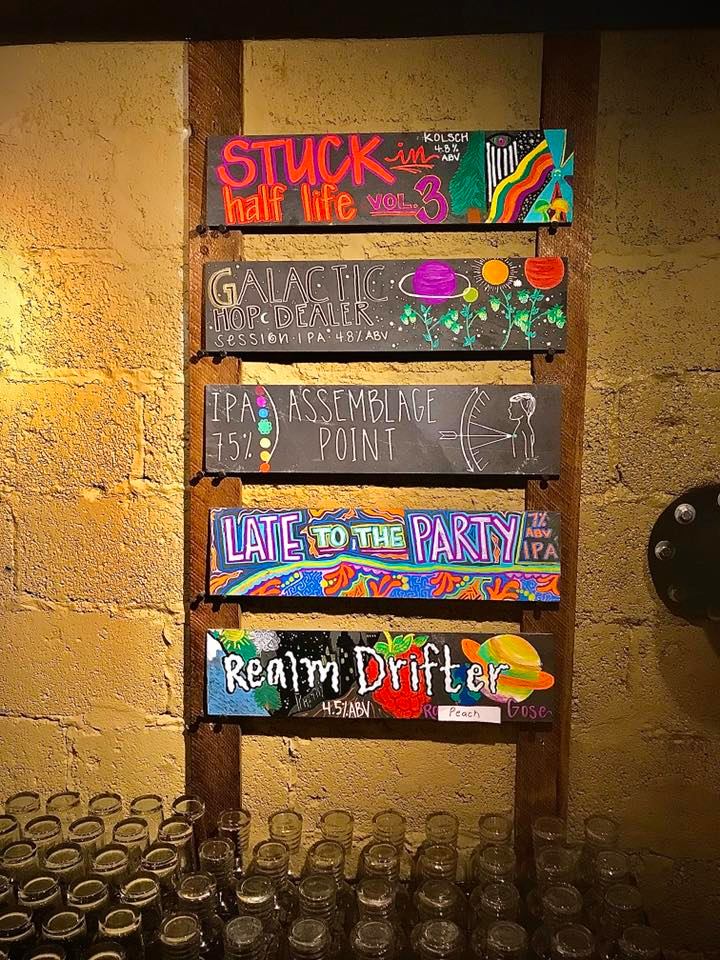 STUCK in
KOLSCH
4.8%
ABV
half life VOL. 3
GALACTIC
HOP DEALER
SESSION · IPA · 4.8% ABV
IPA
7.5%
ASSEMBLAGE
POINT
LATE TO THE PARTY
7%
ABV
IPA
Realm Drifter
4.5% ABV
Peach
Gose